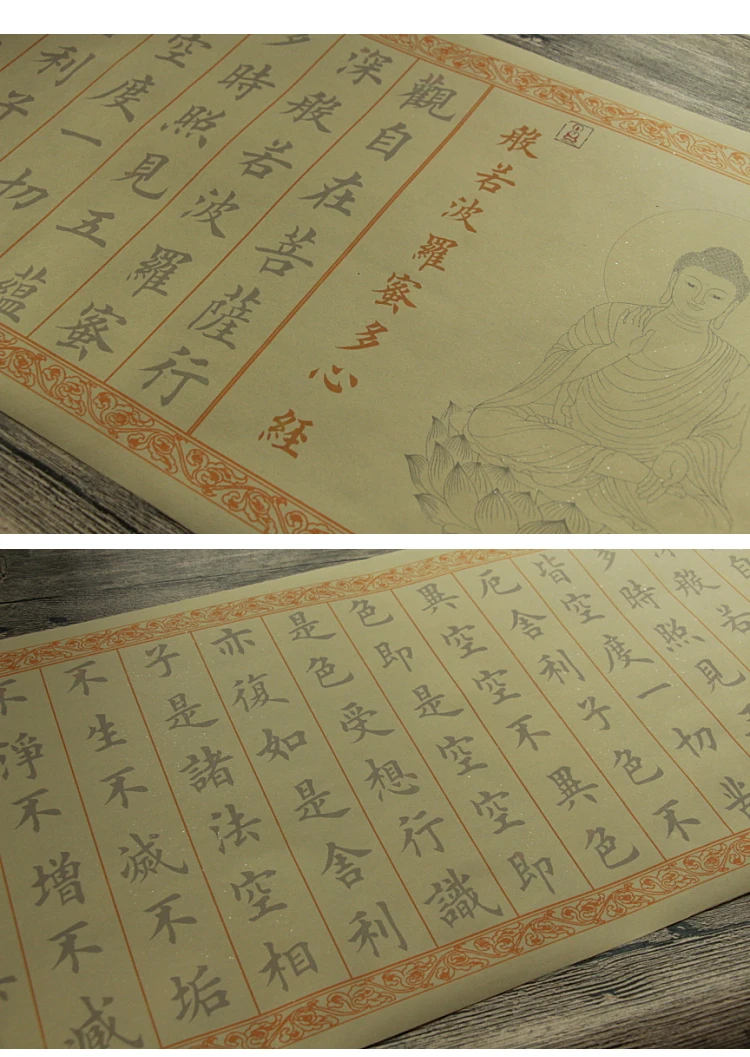 般若波羅蜜多心經
觀自在菩薩行
深般若波羅蜜
多時照見五蘊
空度一切
利子
自
般若
多時照見
皆空度一切
厄舍利子色不
異空空不異色
色即是空空即
是色受想行識
亦復如是舍利
子是諸法空相
不生不滅不垢
不淨不增不減